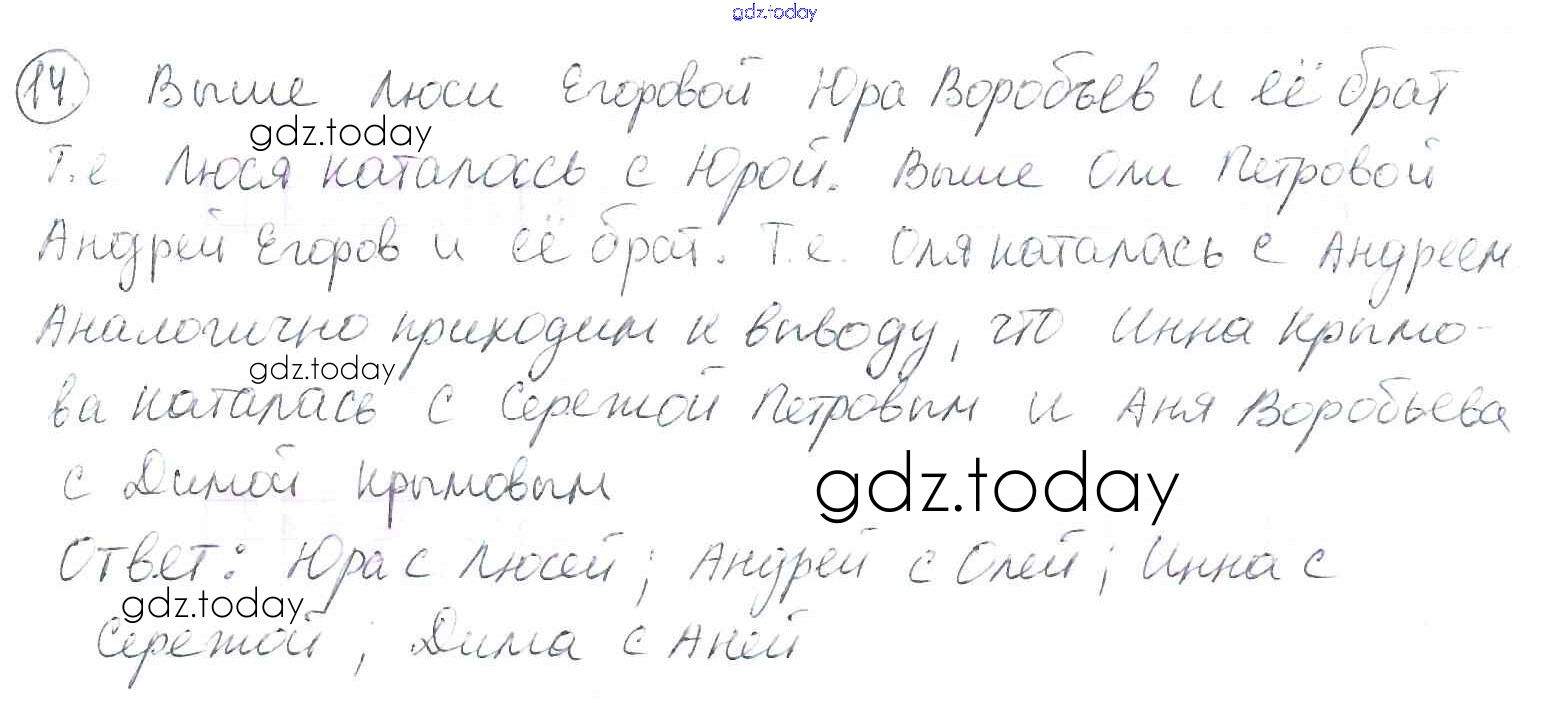 gdz.today
14 Выше Люси Егоровой Юра Воробьев и её брат
gdz.today
Т.е Люся каталась с Юрой. Выше Оли Петровой
Андрей Егоров и её брат. Т.е. Оля каталась с Андреем
Аналогично приходим к выводу, что Инна Крымо-
gdz.today
ва каталась с Сережой Петровым и Аня Воробьева
с Димой Крымовым
gdz.today
Ответ: Юра с Люсей; Андрей с Олей; Инна с
gdz.today
Сережой; Дима с Аней